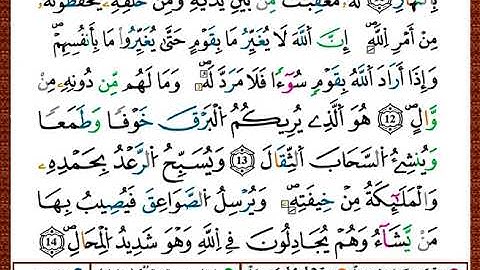 بِالنَّهَارِ ۝ لَهُۥ مُعَقِّبَٰتٞ مِّنۢ بَيۡنِ يَدَيۡهِ وَمِنۡ خَلۡفِهِۦ يَحۡفَظُونَهُۥ
مِنۡ أَمۡرِ اِ۬للَّهِۗ إِنَّ اَ۬للَّهَ لَا يُغَيِّرُ مَا بِقَوۡمٍ حَتَّىٰ يُغَيِّرُواْ مَا بِأَنفُسِهِمۡۗ
وَإِذَا أَرَادَ اَ۬للَّهُ بِقَوۡمٖ سُوٓءٗا فَلَا مَرَدَّ لَهُۥۚ وَمَا لَهُم مِّن دُونِهِۦ مِنۡ
وَّالٍ 12 هُوَ اَ۬لَّذِي يُرِيكُمُ اُ۬لۡبَرۡقَ خَوۡفٗا وَطَمَعٗا
وَيُنشِئُ اُ۬لسَّحَابَ اَ۬لثِّقَالَ 13 وَيُسَبِّحُ اُ۬لرَّعۡدُ بِحَمۡدِهِۦ
وَالۡمَلَٰٓئِكَةُ مِنۡ خِيفَتِهِۦۖ وَيُرۡسِلُ اُ۬لصَّوَٰعِقَ فَيُصِيبُ بِهَا
مَنۡ يَّشَآءُ وَهُمۡ يُجَٰدِلُونَ فِي اِ۬للَّهِ وَهُوَ شَدِيدُ اُ۬لۡمِحَالِ 14